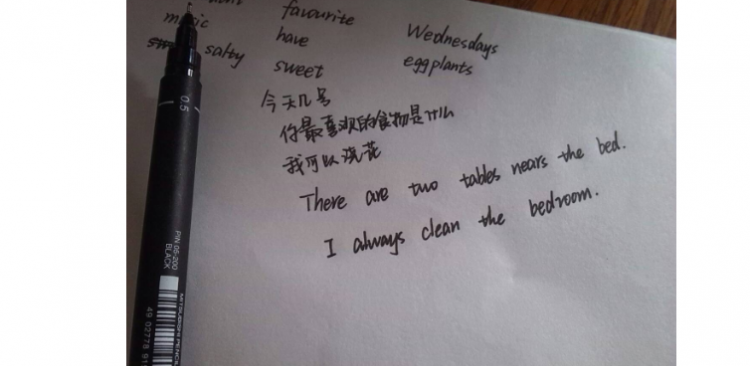 favourite
music have Wednesdays
salty sweet eggplants
今天几号
你最喜欢的食物是什么
我可以浇花
There are two tables nears the bed.
I always clean the bedroom.
0.5
PIN 05-200
BLACK
MITSUBISHI PENCIL
49 02778 91